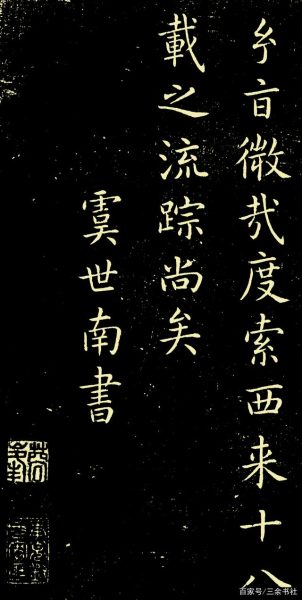 微哉度索西来十八
載之流踪尚矣
虞世南書
百家号/三余书社